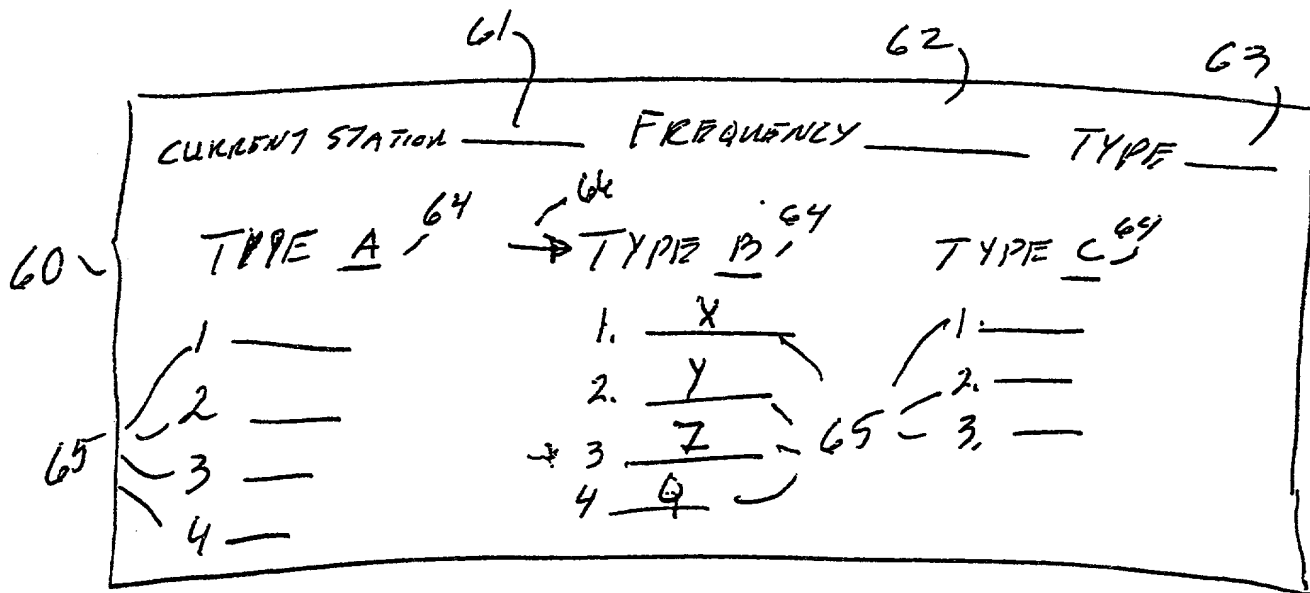 61 62 63
CURRENT STATION ____ FREQUENCY ____ TYPE ____
60 TYPE A 64 66 TYPE B 64 TYPE C 64
1 ____ 1. X 1. ____
2 ____ 2. Y 2. ____
65 3 ____ 3 Z 65 3. ____
4 ____ 4 Q